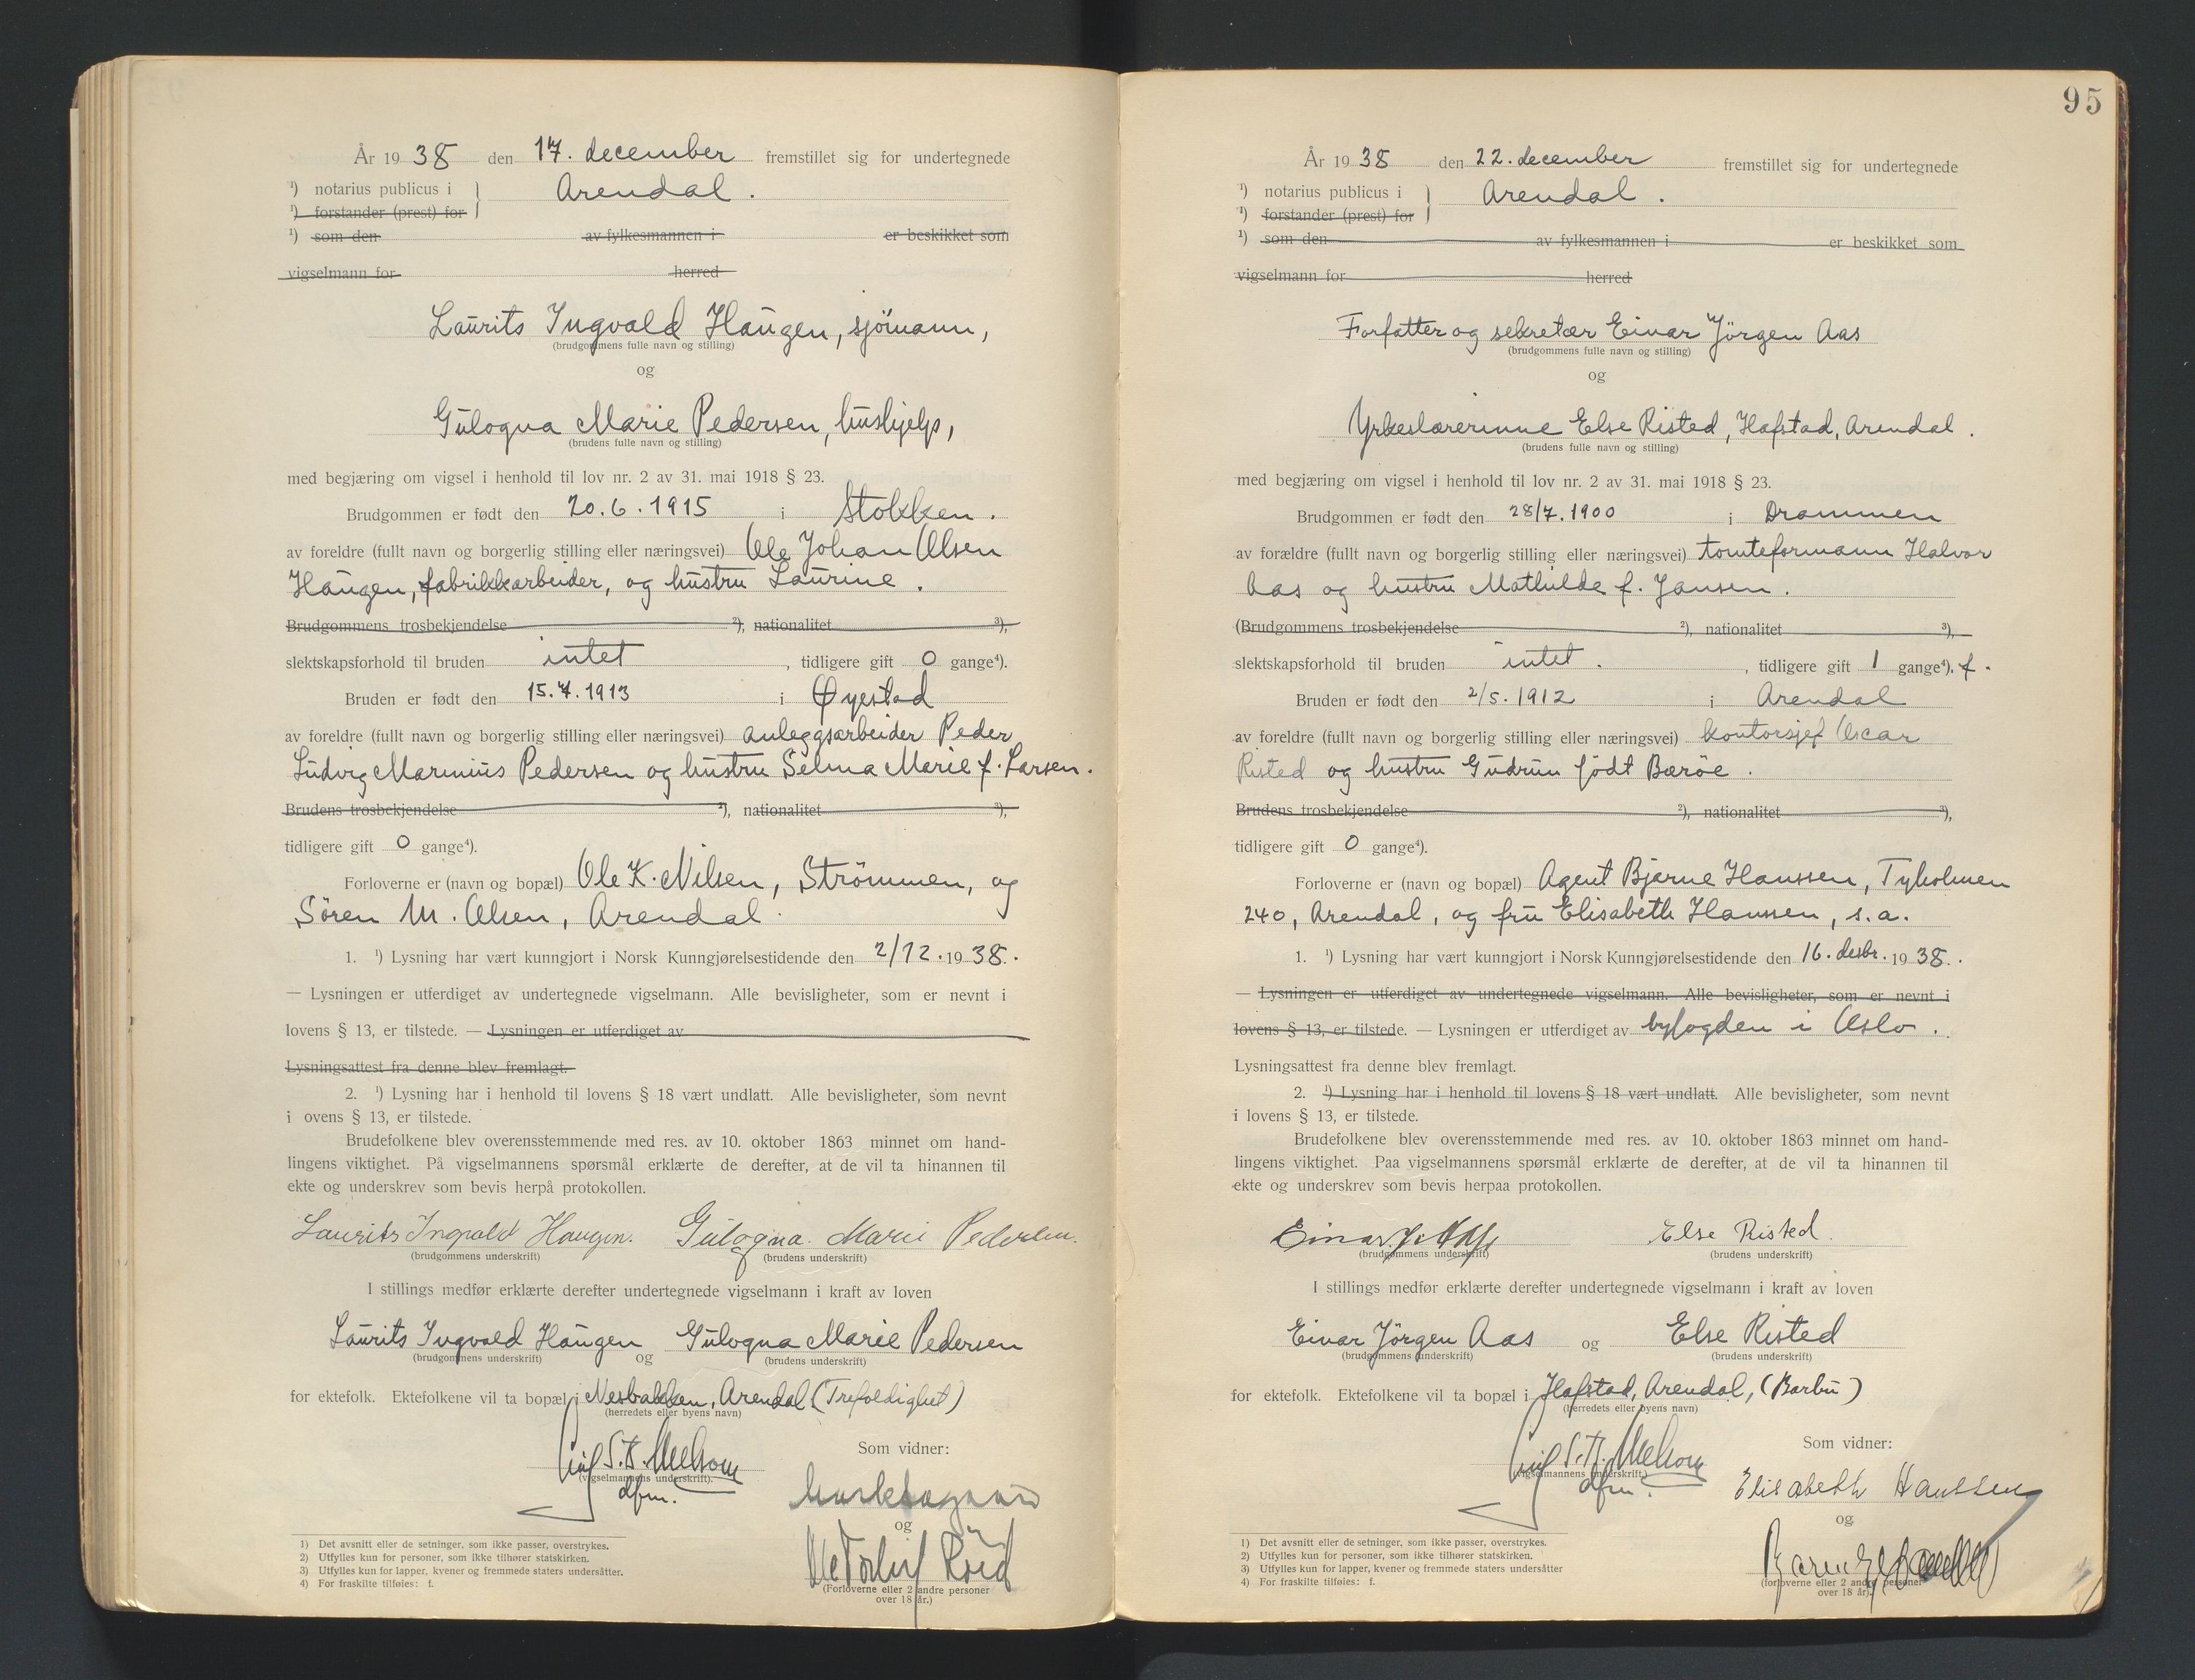 År 19 38 den 17. december fremstillet sig for undertegnede
¹) notarius publicus i } Arendal .
¹) forstander (prest) for
¹) som den av fylkesmannen i er beskikket som
vigselmann for herred
Laurits Ingvald Haugen, sjömann,
(brudgommens fulle navn og stilling)
og
Gulogna Marie Pedersen, hushjelp,
(brudens fulle navn og stilling)
med begjæring om vigsel i henhold til lov nr. 2 av 31. mai 1918 § 23.
Brudgommen er født den 20.6.1915 i Stokken.
av foreldre (fullt navn og borgerlig stilling eller næringsvei) Ole Johan Olsen
Haugen, fabrikkarbeider, og hustru Laurine .
Brudgommens trosbekjendelse ²), nationalitet ³),
slektskapsforhold til bruden intet , tidligere gift 0 gange⁴).
Bruden er født den 15.7.1913 i Øyestad
av foreldre (fullt navn og borgerlig stilling eller næringsvei) anleggsarbeider Peder
Ludvig Marinius Pedersen og hustru Selma Marie f. Larsen.
Brudens trosbekjendelse ²), nationalitet ³),
tidligere gift 0 gange⁴).
Forloverne er (navn og bopæl) Ole K. Nilsen, Strömmen, og
Sören M. Olsen, Arendal.
1. ¹) Lysning har vært kunngjort i Norsk Kunngjørelsestidende den 2/12. 19 38.
— Lysningen er utferdiget av undertegnede vigselmann. Alle bevisligheter, som er nevnt i
lovens § 13, er tilstede. — Lysningen er utferdiget av
Lysningsattest fra denne blev fremlagt.
2. ¹) Lysning har i henhold til lovens § 18 vært undlatt. Alle bevisligheter, som nevnt
i ovens § 13, er tilstede.
Brudefolkene blev overensstemmende med res. av 10. oktober 1863 minnet om hand-
lingens viktighet. På vigselmannens spørsmål erklærte de derefter, at de vil ta hinannen til
ekte og underskrev som bevis herpå protokollen.
Laurits Ingvald Haugen. Gulogna. Marie Pedersen.
(brudgommens underskrift) (brudens underskrift)
I stillings medfør erklærte derefter undertegnede vigselmann i kraft av loven
Laurits Ingvald Haugen og Gulogna Marie Pedersen
(brudgommens underskrift) (brudens underskrift)
for ektefolk. Ektefolkene vil ta bopæl i Nesbakken, Arendal (Trefoldighet)
(herredets eller byens navn)
Som vidner:
dfm.
(vigselmannens underskrift).
og
(Forloverne eller 2 andre personer
over 18 år.)
1) Det avsnitt eller de setninger, som ikke passer, overstrykes.
2) Utfylles kun for personer, som ikke tilhører statskirken.
3) Utfylles kun for lapper, kvener og fremmede staters undersåtter.
4) For fraskilte tilføies: f.
95
År 19 38 den 22. december fremstillet sig for undertegnede
¹) notarius publicus i } Arendal .
¹) forstander (prest) for
¹) som den av fylkesmannen i er beskikket som
vigselmann for herred
Forfatter og sekretær Einar Jörgen Aas
(brudgommens fulle navn og stilling)
og
Yrkeslærerinne Else Risted, Hafstad, Arendal .
(brudens fulle navn og stilling)
med begjæring om vigsel i henhold til lov nr. 2 av 31. mai 1918 § 23.
Brudgommen er født den 28/7.1900 i Drammen
av forældre (fullt navn og borgerlig stilling eller næringsvei) tomteformann Halvor
Aas og hustru Mathilde f. Jansen .
(Brudgommens trosbekjendelse ²), nationalitet ³),
slektskapsforhold til bruden intet . , tidligere gift 1 gange⁴). f.
Bruden er født den 2/5.1912 i Arendal
av forældre (fullt navn og borgerlig stilling eller næringsvei) kontorsjef Oscar
Risted og hustru Gudrun født Bærøe .
Brudens trosbekjendelse ²), nationalitet ³),
tidligere gift 0 gange⁴).
Forloverne er (navn og bopæl) Agent Bjarne Hanssen, Tyholmen
240, Arendal, og fru Elisabeth Hanssen, s.a.
1. ¹) Lysning har vært kunngjort i Norsk Kunngjørelsestidende den 16. desbr. 19 38.
— Lysningen er utferdiget av undertegnede vigselmann. Alle bevisligheter, som er nevnt i
lovens § 13, er tilstede. — Lysningen er utferdiget av byfogden i Oslo .
Lysningsattest fra denne blev fremlagt.
2. ¹) Lysning har i henhold til lovens § 18 vært undlatt. Alle bevisligheter, som nevnt
i lovens § 13, er tilstede.
Brudefolkene blev overensstemmende med res. av 10. oktober 1863 minnet om hand-
lingens viktighet. Paa vigselmannens spørsmål erklærte de derefter, at de vil ta hinannen til
ekte og underskrev som bevis herpaa protokollen.
Einar J. Aas Else Risted.
(brudgommens underskrift) (brudens underskrift)
I stillings medfør erklærte derefter undertegnede vigselmann i kraft av loven
Einar Jörgen Aas og Else Risted
(brudgommens underskrift) (brudens underskrift)
for ektefolk. Ektefolkene vil ta bopæl i Hafstad, Arendal, (Barbu)
(herredets eller byens navn)
Som vidner:
dfm.
(vigselmannens underskrift.)
Elisabeth Hanssen
og
(forloverne eller 2 andre personer
over 18 år).
1) Det avsnitt eller de setninger, som ikke passer, overstrykes.
2) Utfylles kun for personer, som ikke tilhører statskirken.
3) Utfylles kun for lapper, kvener og fremmede staters undersåtter
4) For fraskilte tilføies: f.